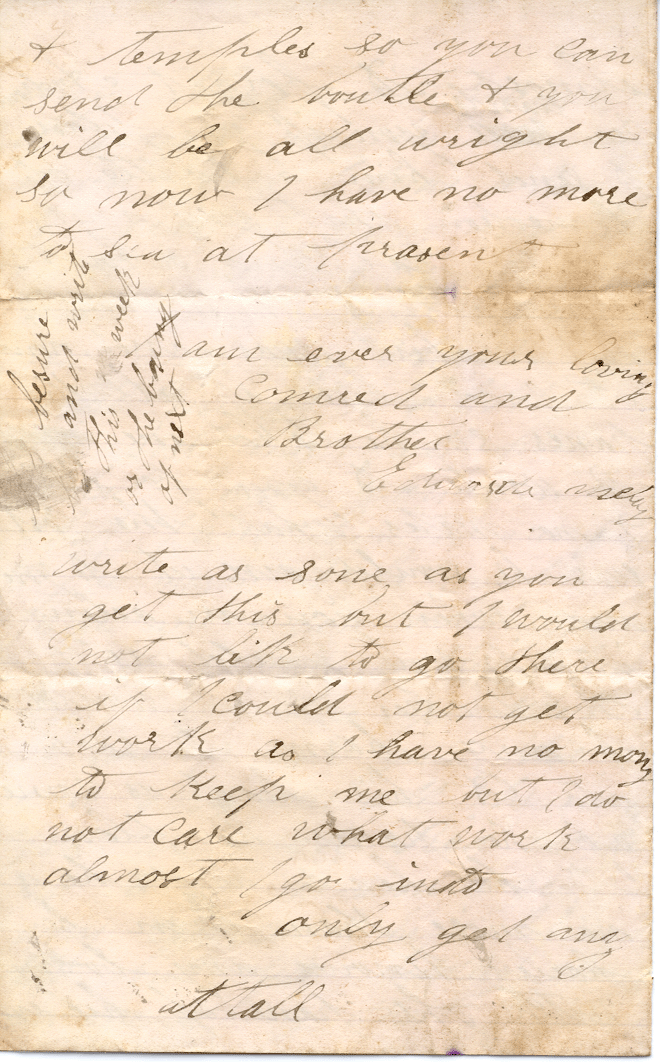 & temples so you can
send the boutle & you
will be all wright
so now I have no more
to sea at prasent
I am ever your loving
Comred and
Brother
Edward
besure
and write
this week
or the being
of next
write as sone as you
get this but I would
not lik to go there
if I could not get
work as I have no mony
to keep me but I do
not care what work
almost I go into
only get any
attall